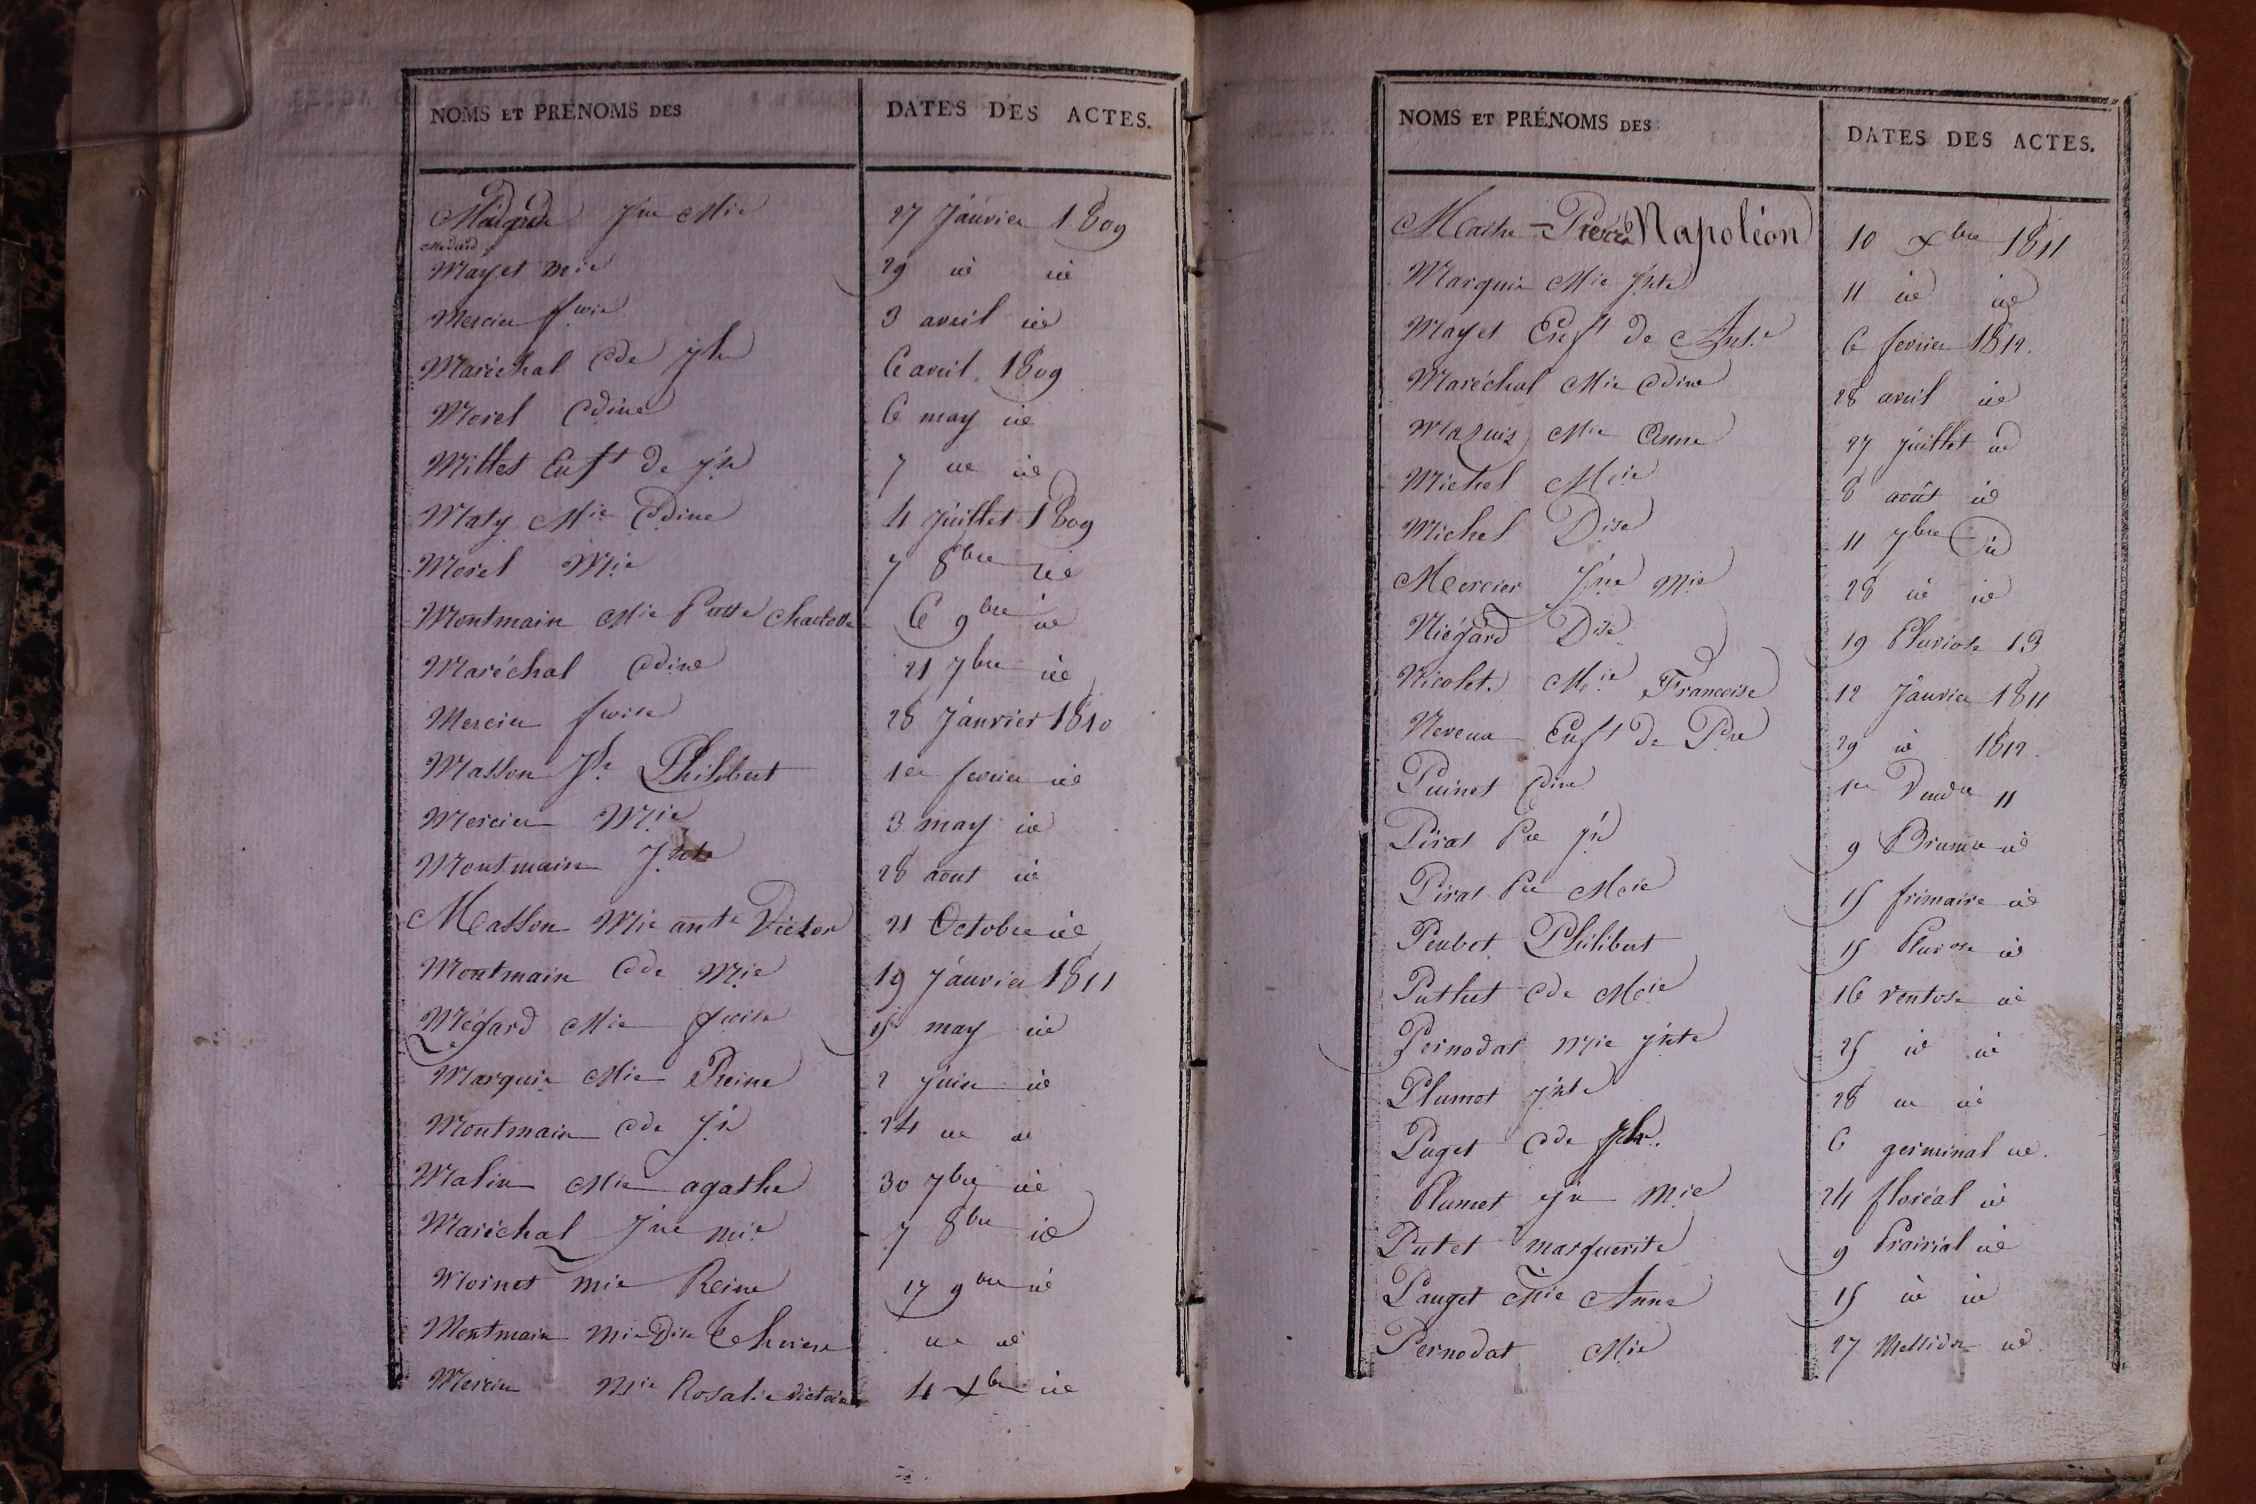 NOMS ET PRÉNOMS DES
DATES DES ACTES.
Jne Mie 27 Janvier 1809
Mayet Mie 29 id id
Mercier fwise 3 avril id
Maréchal Cde Jh 6 avril 1809
Morel Cdine 6 may id
Millet Enft de Jn 7 id id
Maty Mie Cdine 4 Juillet 1809
Morel Mie 7 8bre id
Montmain Mie Pierrette Charlotte 6 9bre id
Maréchal Cdine 21 7bre id
Mercier fwise 28 Janvier 1810
Masson Jh Philibert 1er fevrier id
Mercier Mie 3 may id
Montmain 28 aout id
Masson Mie ante Victor 21 Octobre id
Montmain Cde Mie 19 Janvier 1811
Mégard Mie fwise 15 may id
Marquis Mie Reine 2 Juin id
Montmain Cde Jn 24 id id
Malin Mie agathe 30 7bre id
Maréchal Jne Mie 7 8bre id
Moinot Mie Reine 17 9bre id
Montmain Mie Dise Therese id id
Mercier Mie Rosalie victoire 4 xbre id
NOMS ET PRÉNOMS DES
DATES DES ACTES.
Pierre Napoléon 10 xbre 1811
Marquis Mie Jnte 11 id id
Mayet Enft de Ante 6 fevrier 1812.
Maréchal Mie Cdine 28 avril id
Mie Anne 27 Juillet id
Michel Mie 8 août id
Michel Dise 11 7bre id
Mercier Jne Mie 28 id id
Niégard Dise 19 Pluviose 13
Nicolet Mie Francoise 12 Janvier 1811
Neveux Enft de Pre 29 id 1812.
Puinet Cdine 1er Vendre 11
Pirat Pre Jn 9 Brumre id
Pirat Pre Mie 15 frimaire id
Peubet Philibert 15 Pluviose id
Puthet Cde Mie 16 ventose id
Pernodat Mie Jnte 25 id id
Plumet Jnte 28 id id
Puget Cde Jh. 6 germinal id.
Plumet Jn Mie 24 floréal id
Putet marguerite 9 Prairial id
Pauget Mie Anne 15 id id
Pernodat Mie 27 Messidor id